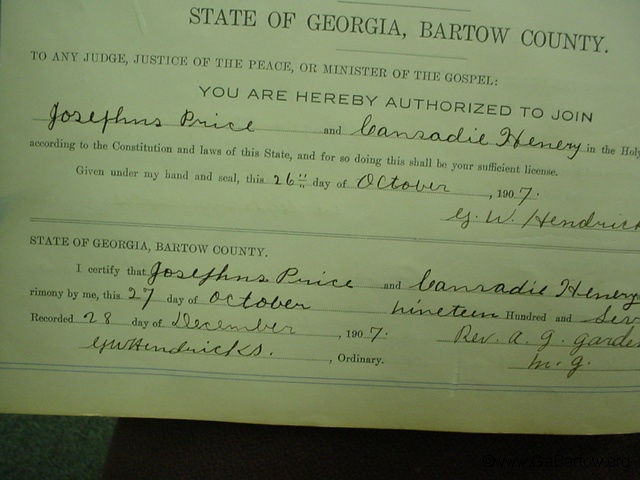 STATE OF GEORGIA, BARTOW COUNTY.
TO ANY JUDGE, JUSTICE OF THE PEACE, OR MINISTER OF THE GOSPEL:
YOU ARE HEREBY AUTHORIZED TO JOIN
Josephus Price and Cansadie Henery in the Holy
according to the Constitution and laws of this State, and for so doing this shall be your sufficient license.
Given under my hand and seal, this 26" day of October, 1907.
G. W. Hendrick
STATE OF GEORGIA, BARTOW COUNTY.
I certify that Josephus Price and Cansadie Henery
rimony by me, this 27 day of October nineteen Hundred and Sev
Recorded 28 day of December, 1907. Rev. A. G. Garde
GWHendricks., Ordinary. M. G.